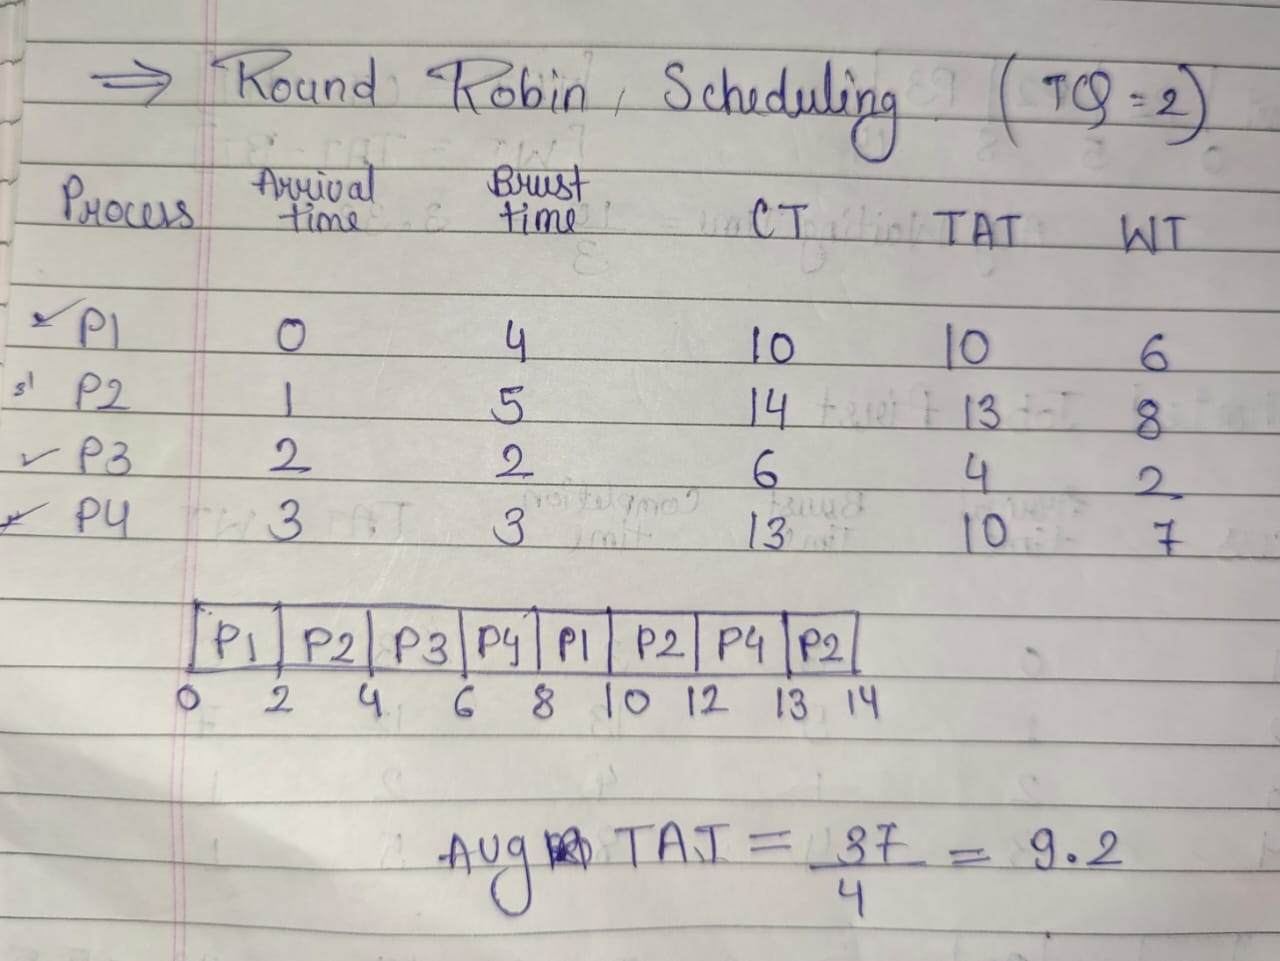 ⇒ Round Robin, Scheduling (TQ = 2)
Process Arrival time Brust time CT TAT WT
✓ P1 0 4 10 10 6
P2 1 5 14 13 8
✓ P3 2 2 6 4 2
P4 3 3 13 10 7
P1 P2 P3 P4 P1 P2 P4 P2
0 2 4 6 8 10 12 13 14
Avg TAT = 37/4 = 9.2